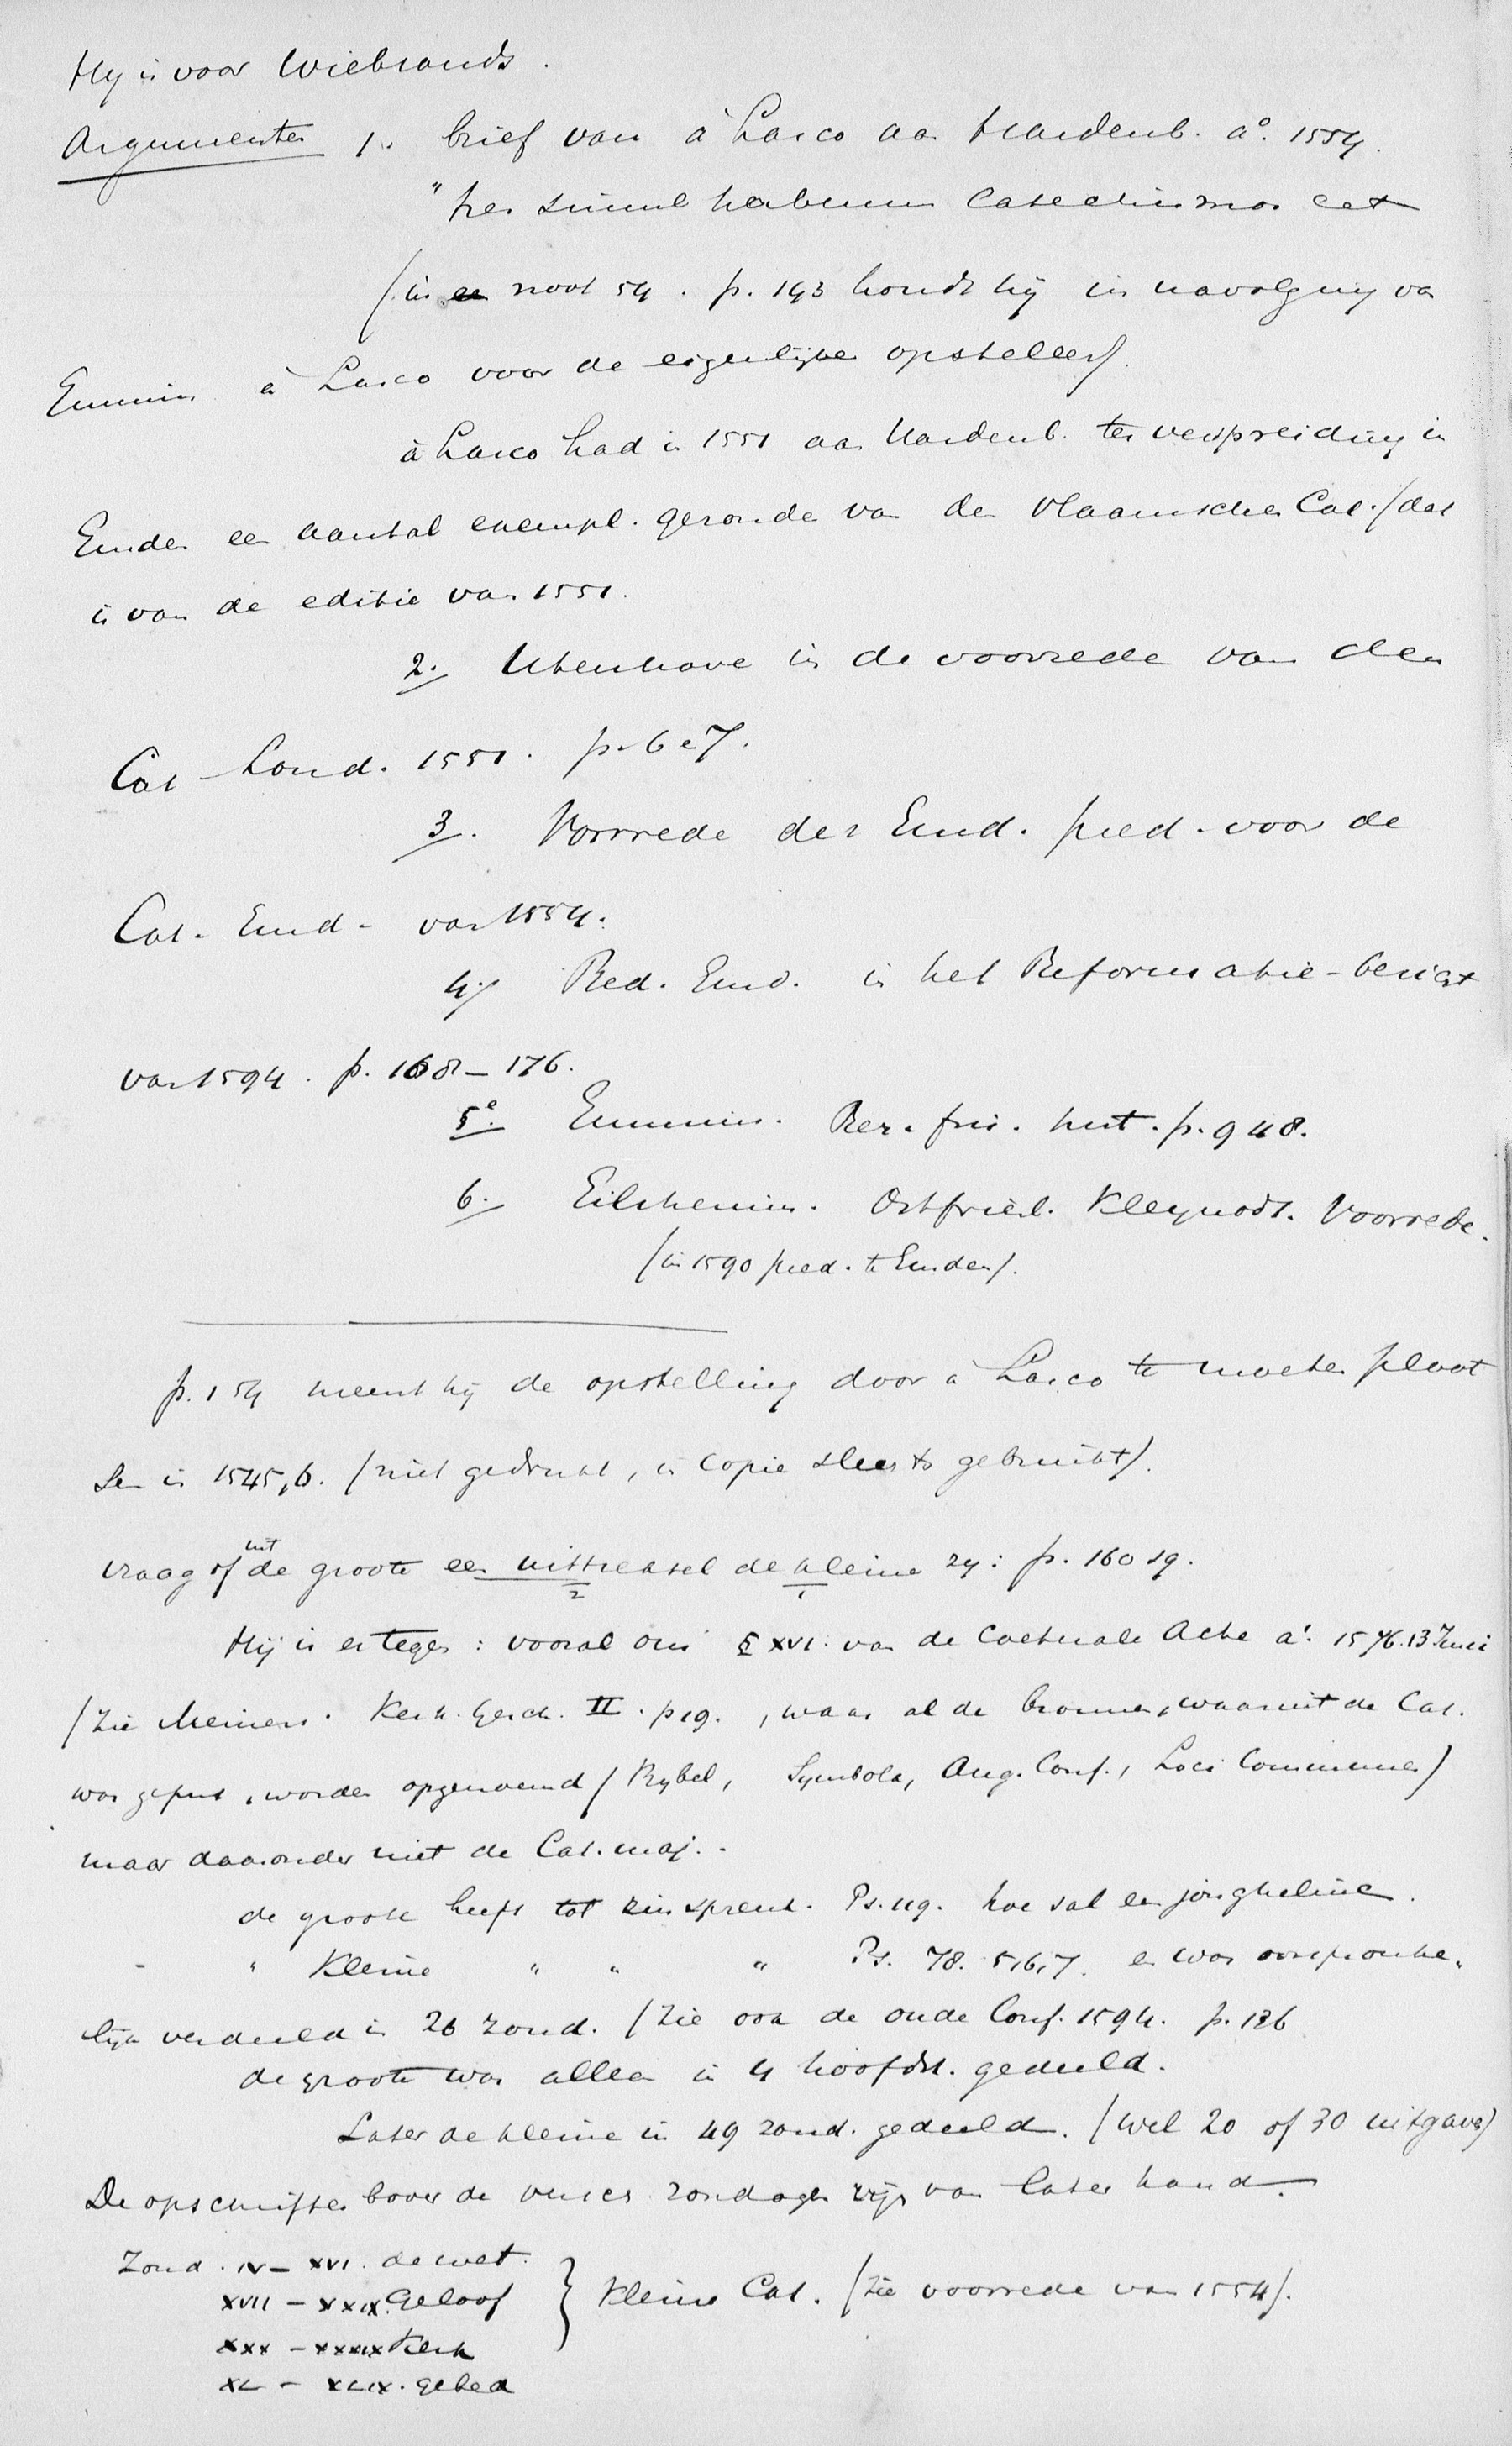 Hy is voor Wiebrands.
Argumenten 1. brief van à Lasco aan Hardenb. a°. 1554.
"hes simul habemus Catechismos cet
(in een noot 54. p. 193 houdt hij in navolging van
Emmius à Lasco voor de eigenlijke opsteller).
à Lasco had in 1551 aan Hardenb. ter verspreiding in
Emden een aantal exempl. gezonden van den Vlaamschen Cat. (dat
is van de editie van 1551.
2. Utenhove in de voorrede van den
Cat Lond. 1551. p. 6 e 7.
3. Vorrrede der Emd. pred. voor de
Cat. Emd. van 1554.
4. Pred. Emd. in het Reformatie-bericht
van 1594. p. 168 – 176.
5e. Emmius. Rer. fris. hist. p. 948.
6. Eilshemius. Ostfriesl. Kleynodt. Voorrede.
(in 1590 pred. te Emden).
p. 154 meent hij de opstelling door à Lasco te moeten plaat
sen in 1545,6. (niet gedrukt, in copie slechts gebruikt).
vraag of uit de groote een uittreksel de kleine zy: p. 160 sq.
Hij is er tegen: vooral om § XVI. van de Coetuale Acte a°. 1576. 13 Juni
(Zie Meiners. Kerk. Gesch. II. p 19., waar al de bronnen, waaruit de Cat.
was geput, worden opgenoemd (Bybel, Symbola, Aug. Conf., Loci Communes)
maar daaronder niet de Cat. maj.
de groote heeft tot zinspreuk. Ps. 119. hoe sal een jonghelinc.
" Kleine " " " Ps. 78. 5,6,7. en was oorspronke-
lijk verdeeld in 26 zond. (Zie ook de oude Conf. 1594. p. 126
de groote was alleen in 4 hoofdst. gedeeld.
Later de kleine in 49 zond. gedeeld. (wel 20 of 30 uitgaven)
De opschriften boven de versces zondagen zijn van later hand.
Zond. IV – XVI. de wet.
XVII – XXIX. Geloof
XXX – XXXIX Kerk
XL – XLIX. gebed
Kleine Cat. (Zie voorrede van 1554).